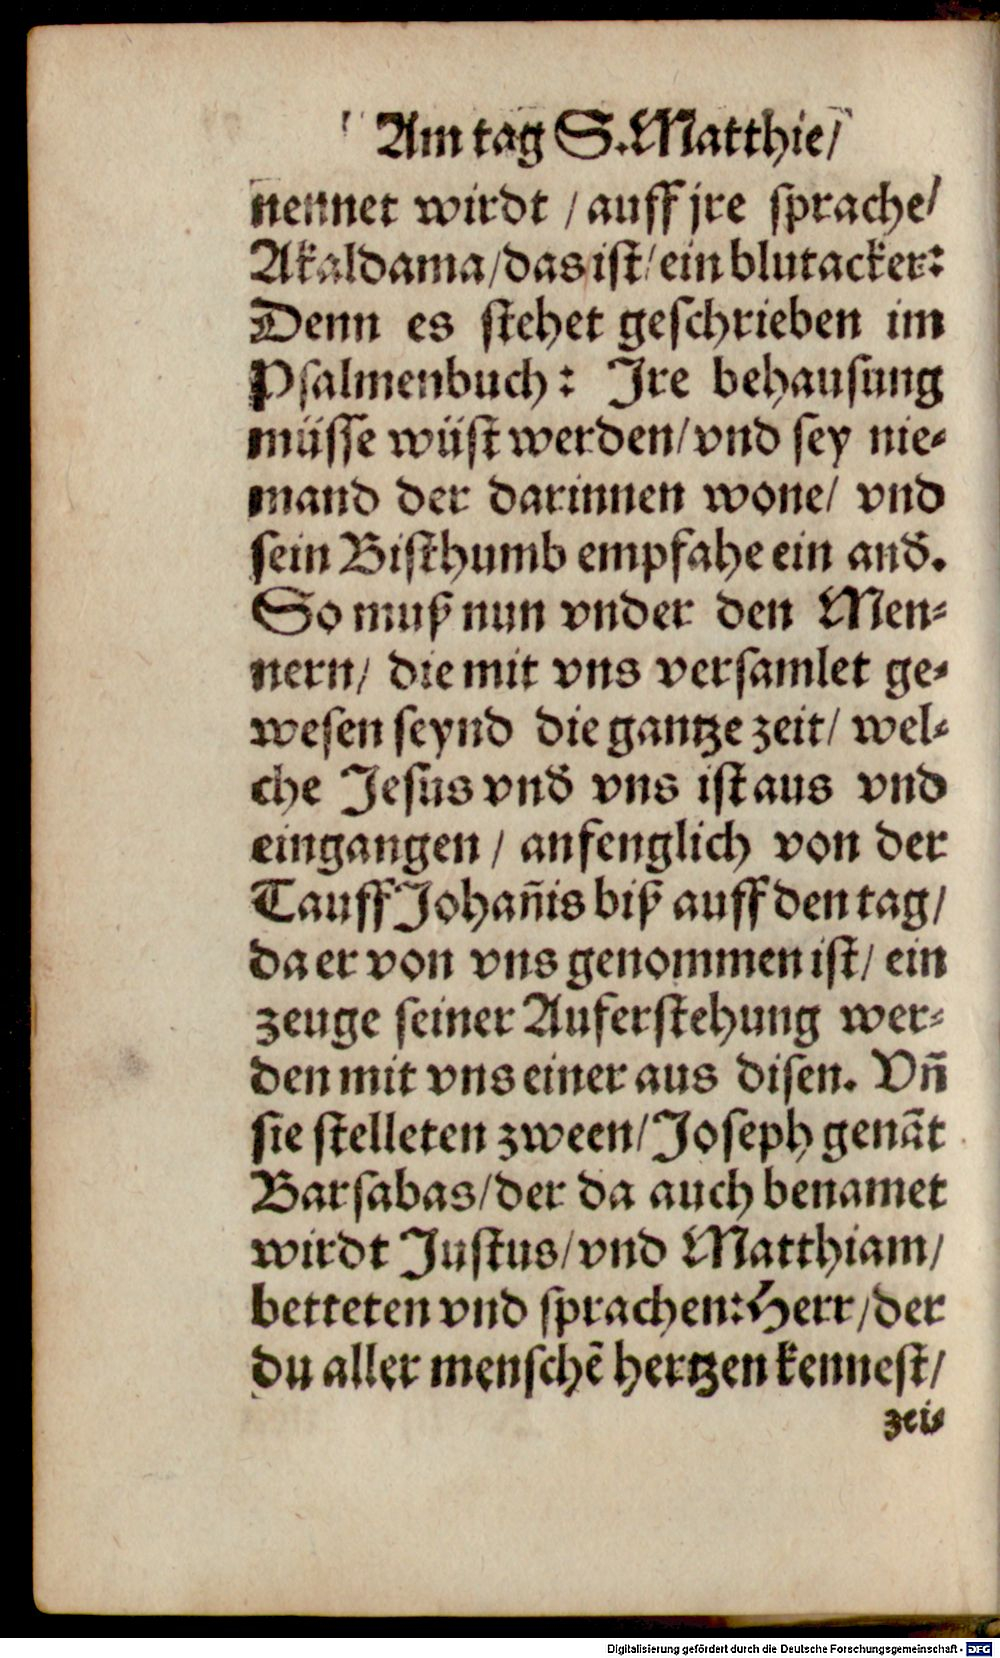 Am tag S. Matthie/
nennet wirdt / auff jre sprache/
Akaldama/das ist/ ein blutacker:
Denn es stehet geschrieben im
Psalmenbuch: Jre behausung
müsse wüst werden/ vnd sey nie⸗
mand der darinnen wone/ vnd
sein Bisthumb empfahe ein and̄.
So muß nun vnder den Men⸗
nern/ die mit vns versamlet ge⸗
wesen seynd die gantze zeit/ wel⸗
che Jesus vnd̄ vns ist aus vnd
eingangen / anfenglich von der
Tauff Johan̄is biß auff den tag/
da er von vns genommen ist/ ein
zeuge seiner Auferstehung wer⸗
den mit vns einer aus disen. Vn̄
sie stelleten zween/ Joseph genāt
Barsabas/der da auch benamet
wirdt Justus/vnd Matthiam/
betteten vnd sprachen: Herr/der
du aller menschē hertzen kennest/
zei⸗
Digitalisierung gefördert durch die Deutsche Forschungsgemeinschaft - DFG